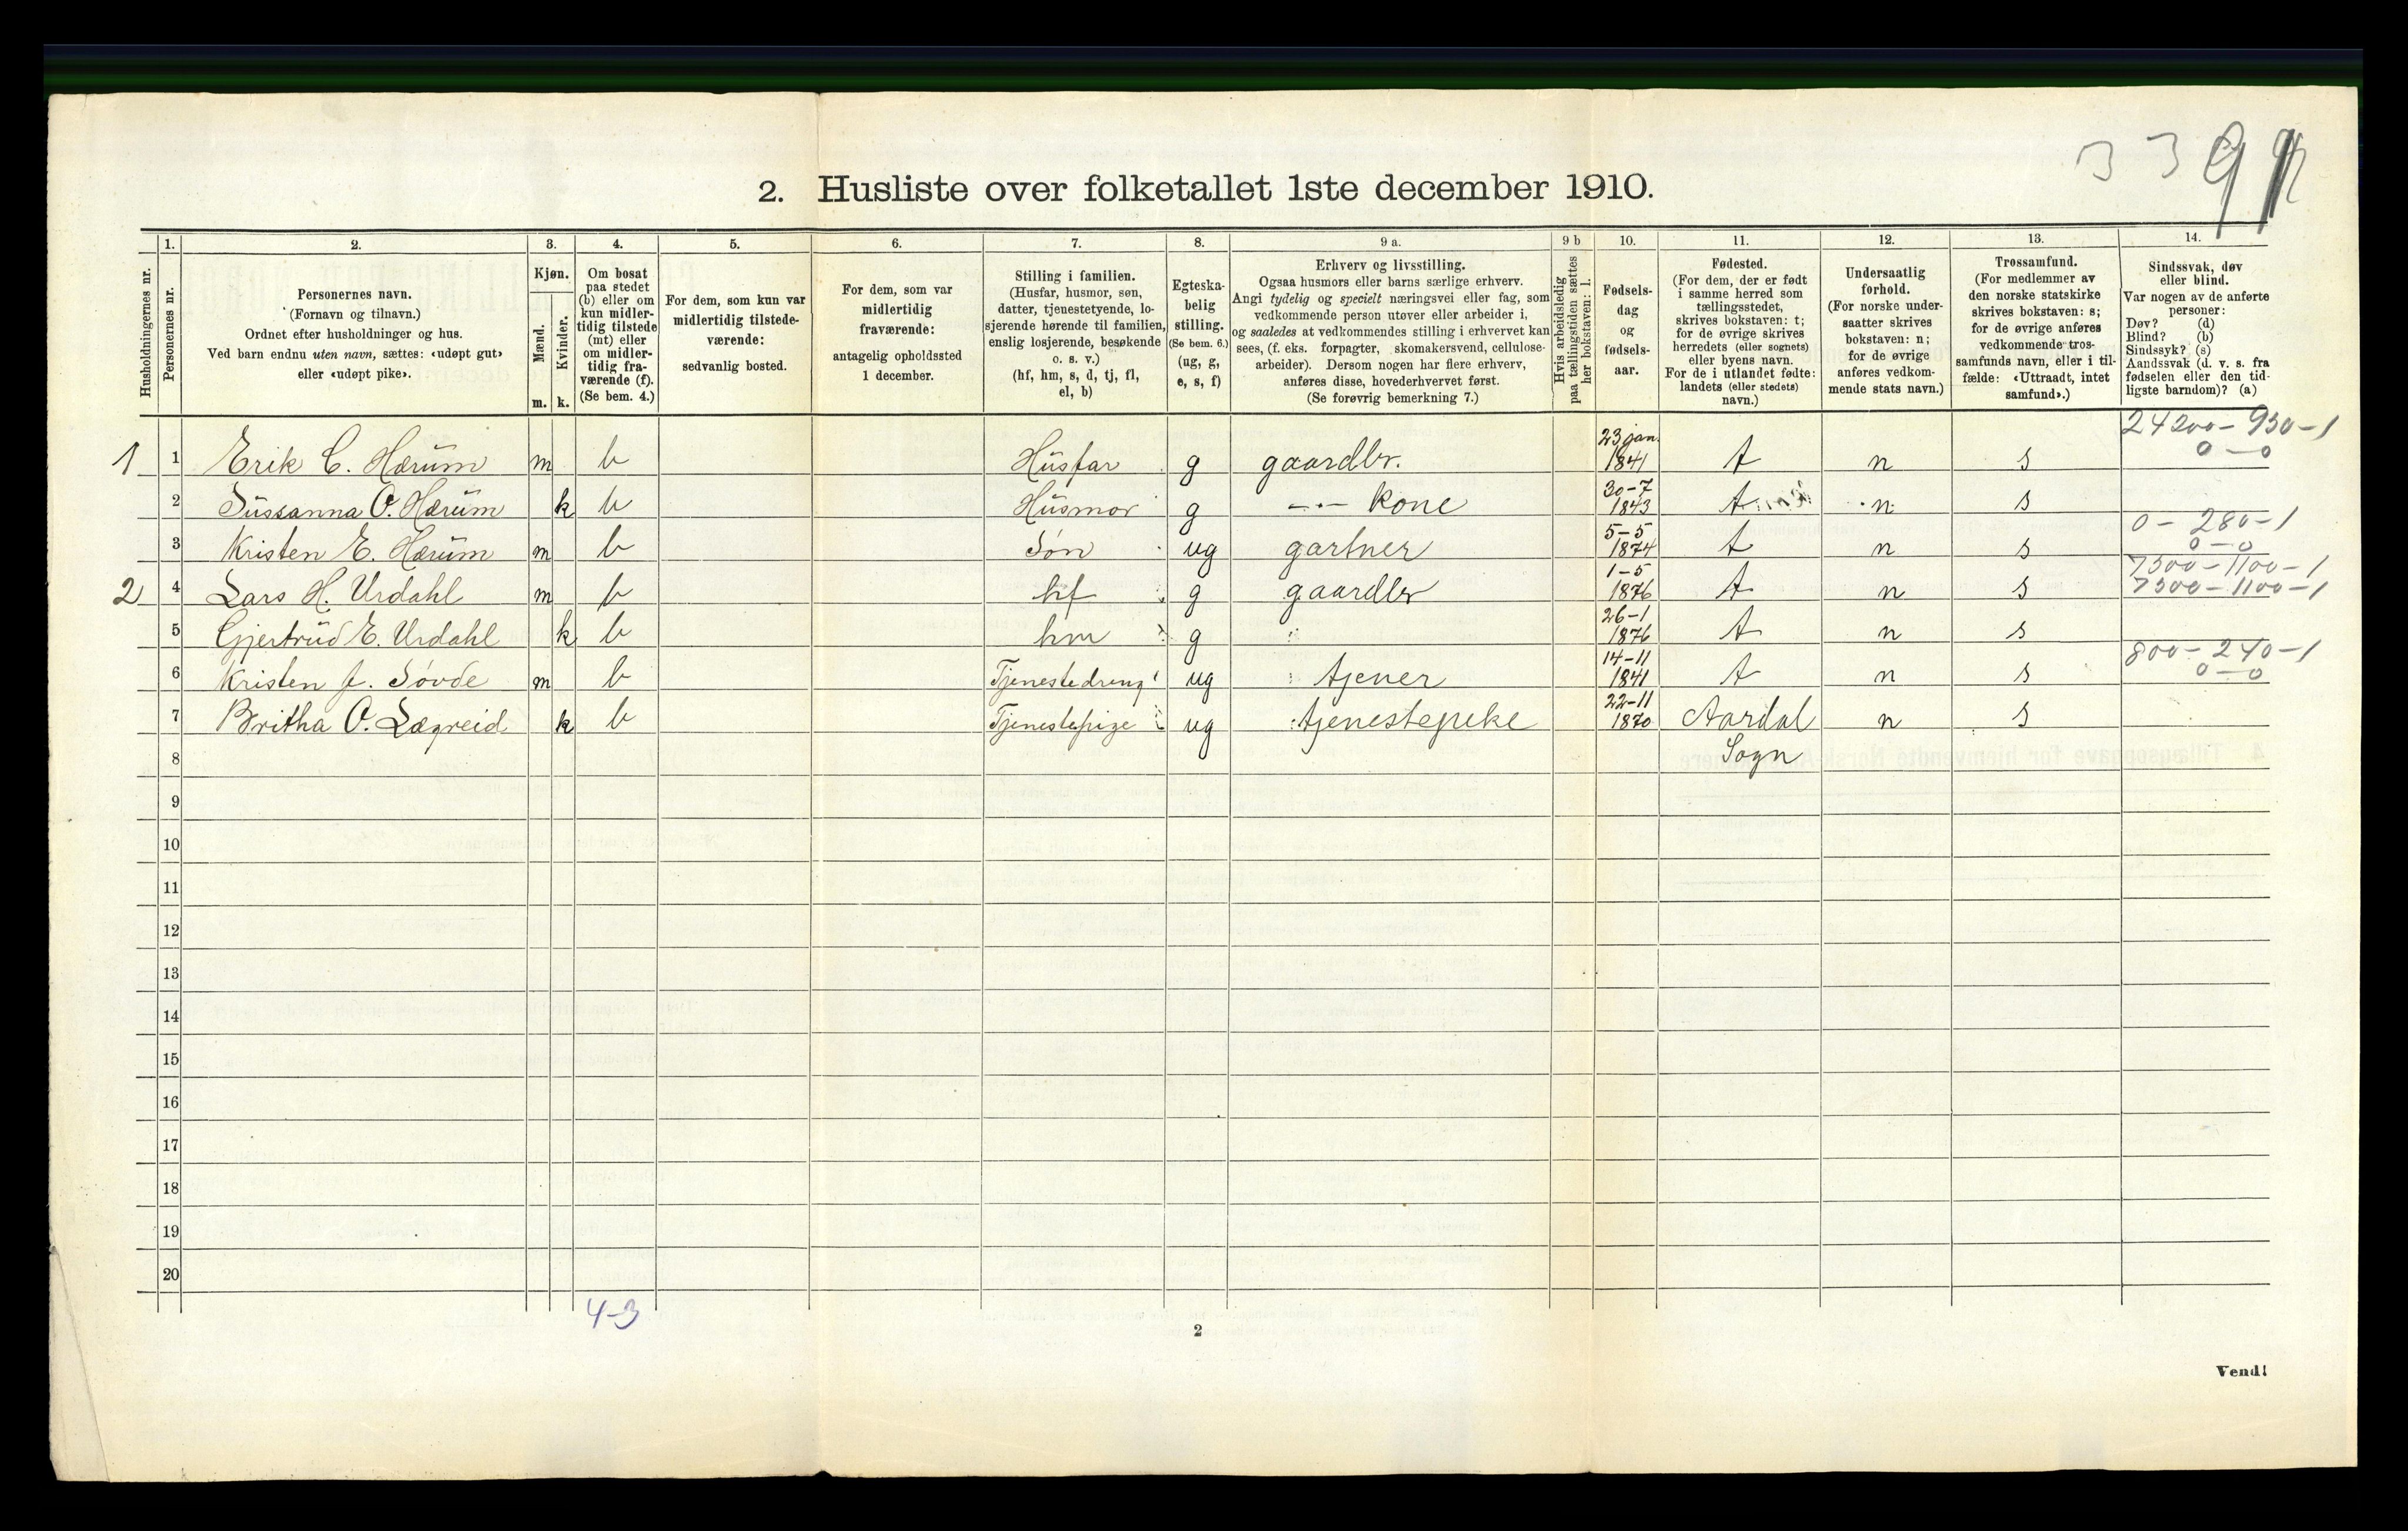 3 3 9
2. Husliste over folketallet 1ste december 1910.
1. 2. 3. 4. 5. 6. 7. 8. 9 a. 9 b 10. 11. 12. 13. 14.
Husholdningernes nr.
Personernes nr.
Personernes navn.
(Fornavn og tilnavn.)
Ordnet efter husholdninger og hus.
Ved barn endnu uten navn, sættes: «udøpt gut»
eller «udøpt pike».
Kjøn.
Mænd.
Kvinder.
m. k.
Om bosat
paa stedet
(b) eller om
kun midler-
tidig tilstede
(mt) eller
om midler-
tidig fra-
værende (f).
(Se bem. 4.)
For dem, som kun var
midlertidig tilstede-
værende:
sedvanlig bosted.
For dem, som var
midlertidig
fraværende:
antagelig opholdssted
1 december.
Stilling i familien.
(Husfar, husmor, søn,
datter, tjenestetyende, lo-
sjerende hørende til familien,
enslig losjerende, besøkende
o. s. v.)
(hf, hm, s, d, tj, fl,
el, b)
Egteska-
belig
stilling.
(Se bem. 6.)
(ug, g,
e, s, f)
Erhverv og livsstilling.
Ogsaa husmors eller barns særlige erhverv.
Angi tydelig og specielt næringsvei eller fag, som
vedkommende person utøver eller arbeider i,
og saaledes at vedkommendes stilling i erhvervet kan
sees, (f. eks. forpagter, skomakersvend, cellulose-
arbeider). Dersom nogen har flere erhverv,
anføres disse, hovederhvervet først.
(Se forøvrig bemerkning 7.)
Hvis arbeidsledig
paa tællingstiden sættes
her bokstaven: l.
Fødsels-
dag
og
fødsels-
aar.
Fødested.
(For dem, der er født
i samme herred som
tællingsstedet,
skrives bokstaven: t;
for de øvrige skrives
herredets (eller sognets)
eller byens navn.
For de i utlandet fødte:
landets (eller stedets)
navn.)
Undersaatlig
forhold.
(For norske under-
saatter skrives
bokstaven: n;
for de øvrige
anføres vedkom-
mende stats navn.)
Trossamfund.
(For medlemmer av
den norske statskirke
skrives bokstaven: s;
for de øvrige anføres
vedkommende tros-
samfunds navn, eller i til-
fælde: «Uttraadt, intet
samfund».)
Sindssvak, døv
eller blind.
Var nogen av de anførte
personer:
Døv? (d)
Blind? (b)
Sindssyk? (s)
Aandssvak (d. v. s. fra
fødselen eller den tid-
ligste barndom)? (a)
1 1 Erik C. Hærum m b Husfar g gaardbr. 23 jan. 1841 t n s 24200 - 930 - 1 0 - 0
2 Sussanna O. Hærum k b Husmor g -"- kone 30-7 1843 t n s
3 Kristen E. Hærum m b Søn ug gartner 5-5 1874 t n s 0 - 280 - 1 0 - 0
2 4 Lars H. Urdahl m b hf g gaardbr 1-5 1876 t n s 7300 - 1100 - 1 7300 - 1100 - 1
5 Gjertrud E. Urdahl k b hm g 26-1 1876 t n s
6 Kristen J. Søvde m b Tjenestedreng ug tjener 14-11 1841 t n s 800 - 240 - 1 0 - 0
7 Britha O. Lægreid k b Tjenestepige ug tjenestepike 22-11 1870 Aardal n s
8 Sogn
9
10
11
12
13
14
15
16
17
18
19
20
4-3
2
Vend!